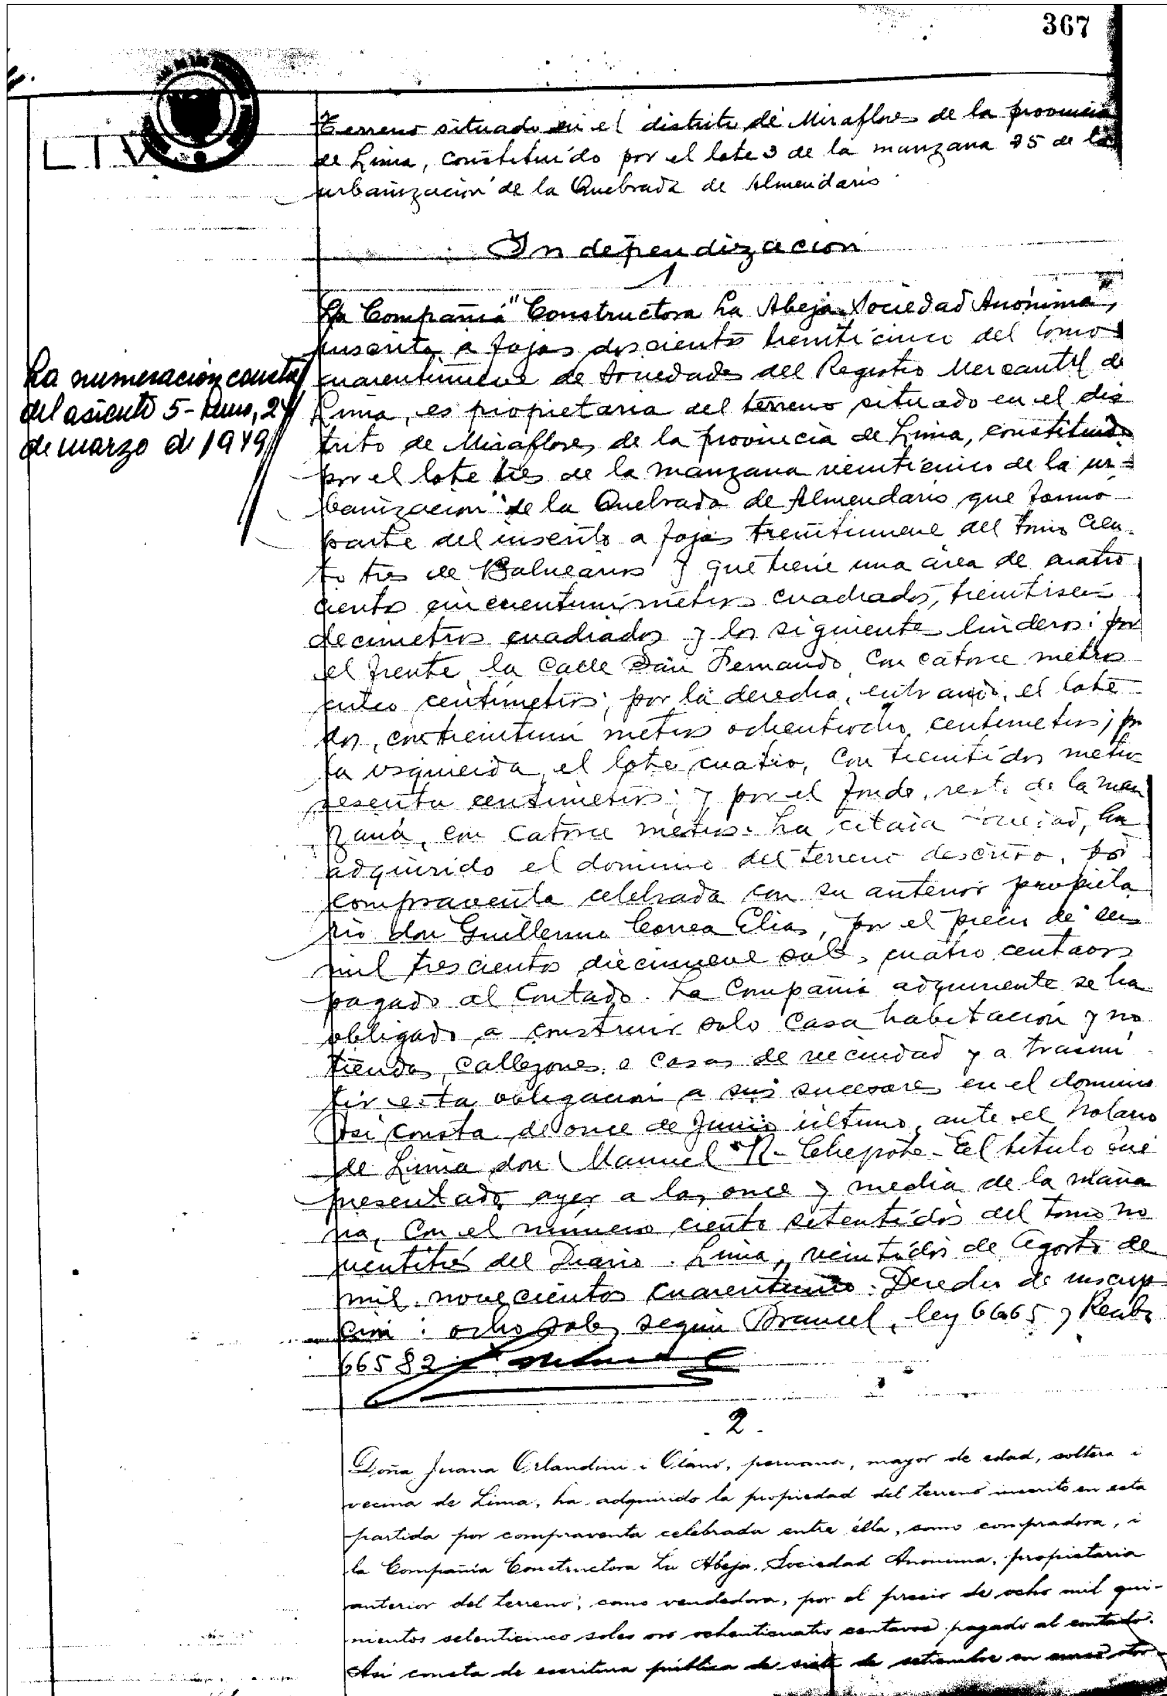 367
L I V
Terreno situado en el distrito de Miraflores de la provincia
de Lima, constituído por el lote 3 de la manzana 25 de la
urbanización de la Quebrada de Almendaris
Independizacion
1
La Compañia "Constructora La Abeja Sociedad Anónima",
inscrita a fojas doscientos treinticinco del tomo
cuarentinueve de Sociedades del Registro Mercantil de
Lima, es propietaria del terreno situado en el dis
trito de Miraflores de la provincia de Lima, constituido
por el lote tres de la manzana veinticinco de la ur-
banización de la Quebrada de Almendaris que formó
parte del inscrito a fojas treintinueve del tomo cien-
to tres de Balnearios y que tiene una área de cuatro
cientos cincuentiun metros cuadrados, treintiseis
decimetros cuadrados y los siguientes linderos: por
el frente, la Calle San Fernando, con catorce metros
centimetros; por la derecha, entrando, el lote
dos, con treintiun metros ochentiocho centimetros; por
la izquierda, el lote cuatro, con treintidos metros
sesenta centimetros; y por el fondo, resto de la man
zana, con catorce metros. La citada sociedad, ha
adquirido el dominio del terreno descrito, por
compraventa celebrada con su anterior propieta
rio don Guillermo Correa Elias, por el precio de seis
mil trescientos diecinueve soles, cuatro centavos
pagado al Contado. La Compañia adquirente se ha
obligado a construir solo casa habitación y no
tiendas, callejones, o casas de vecindad y a trasmi
tir esta obligación a sus sucesores en el dominio
Asi consta de once de Junio último, ante el Notario
de Lima don Manuel R. Chepote. El titulo fué
presentado ayer a las once y media de la maña
na, con el número ciento setentidós del tomo no
ventitrés del Diario. Lima, veintidós de Agosto de
mil novecientos cuarentiuno. Derechos de inscrip
ción: ocho soles, según Arancel, ley 6665 y Recibo
66582
La numeración consta
del asiento 5- Lima, 24
de marzo de 1949
2.
Doña Juana Orlandini i Olano, peruana, mayor de edad, soltera i
vecina de Lima, ha adquirido la propiedad del terreno inscrito en esta
partida por compraventa celebrada entre élla, como compradora, i
la Compañia Constructora La Abeja, Sociedad Anonima, propietaria
anterior del terreno, como vendedora, por el precio de ocho mil qui-
nientos setenticinco soles oro ochenticuatro centavos pagado al contado.
Asi consta de escritura pública de siete de setiembre en curso